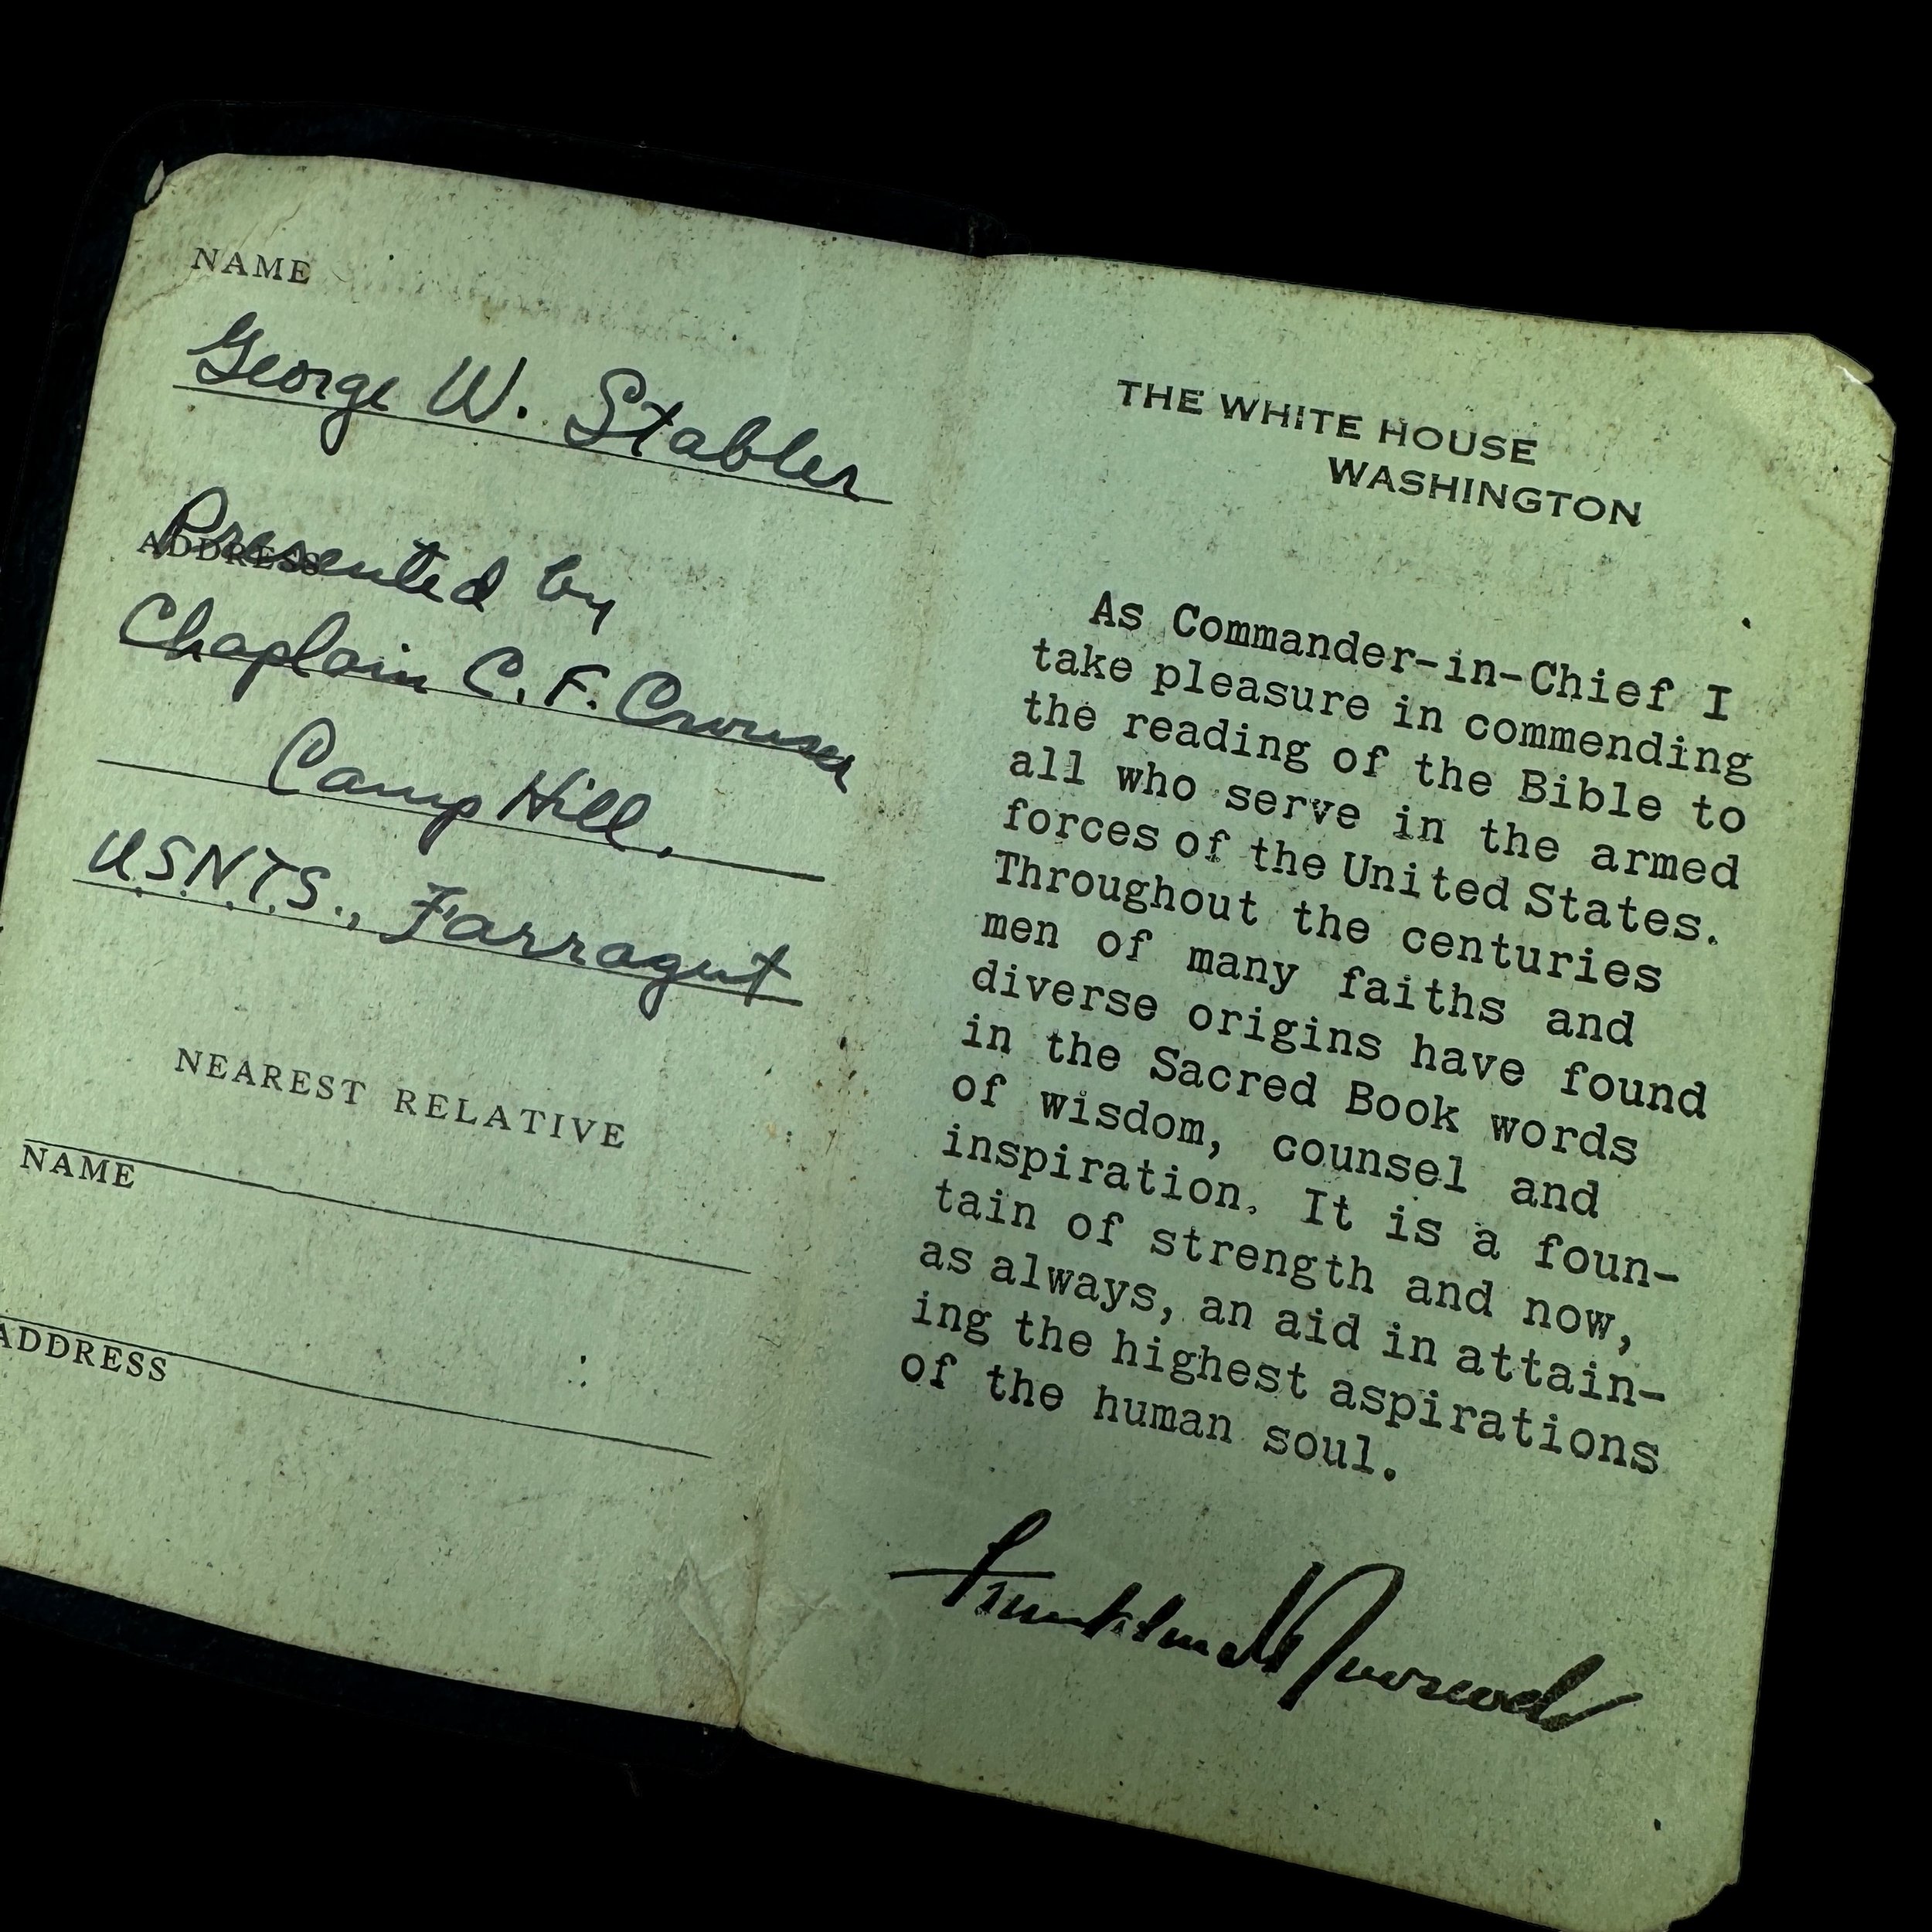 NAME
George W. Stabler
ADDRESS
Presented by
Chaplain C. F. Crouser
Camp Hill.
U.S.N.T.S., Farragut
NEAREST RELATIVE
NAME
ADDRESS
THE WHITE HOUSE
WASHINGTON
As Commander-in-Chief I
take pleasure in commending
the reading of the Bible to
all who serve in the armed
forces of the United States.
Throughout the centuries
men of many faiths and
diverse origins have found
in the Sacred Book words
of wisdom, counsel and
inspiration. It is a foun-
tain of strength and now,
as always, an aid in attain-
ing the highest aspirations
of the human soul.
Franklin D Roosevelt